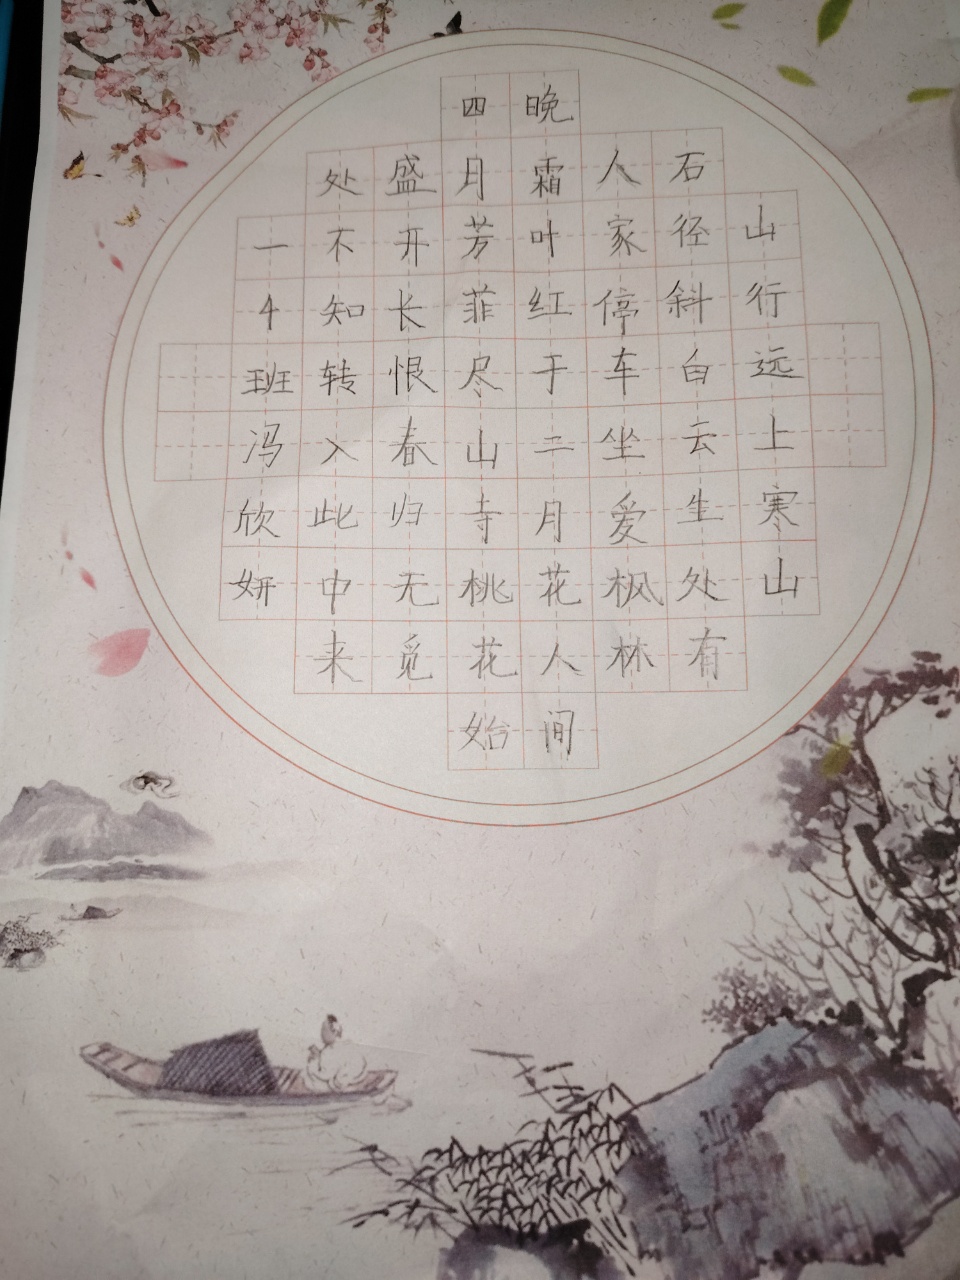 山行远上寒山
石径斜白云生处有
人家停车坐爱枫林
晚霜叶红于二月花人间
四月芳菲尽山寺桃花始
盛开长恨春归无觅
处不知转入此中来
一4班冯欣妍